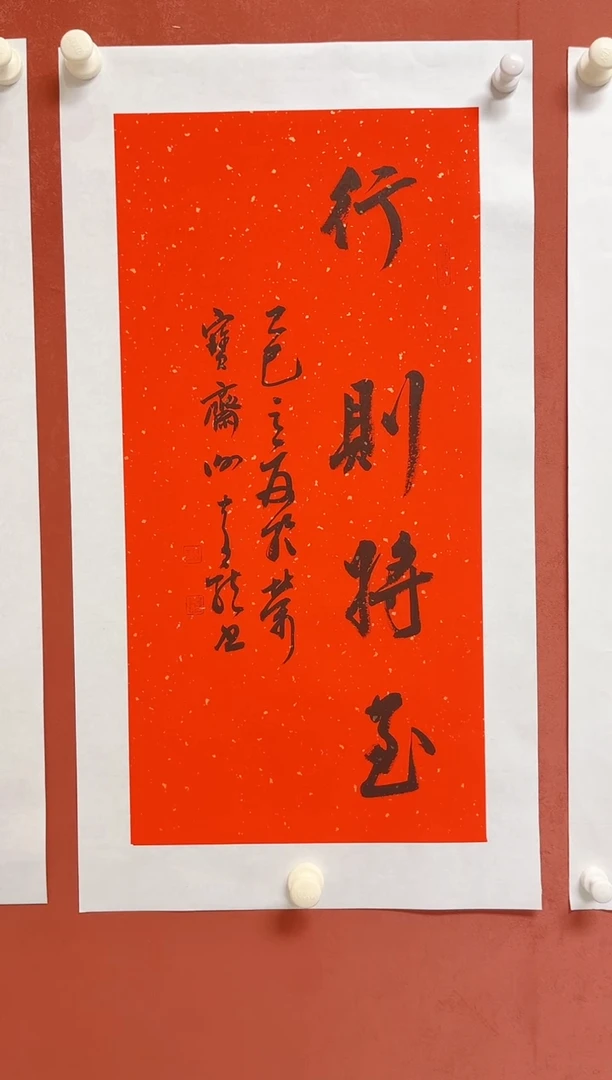 行則將至
乙巳之夏於榮
寶齋